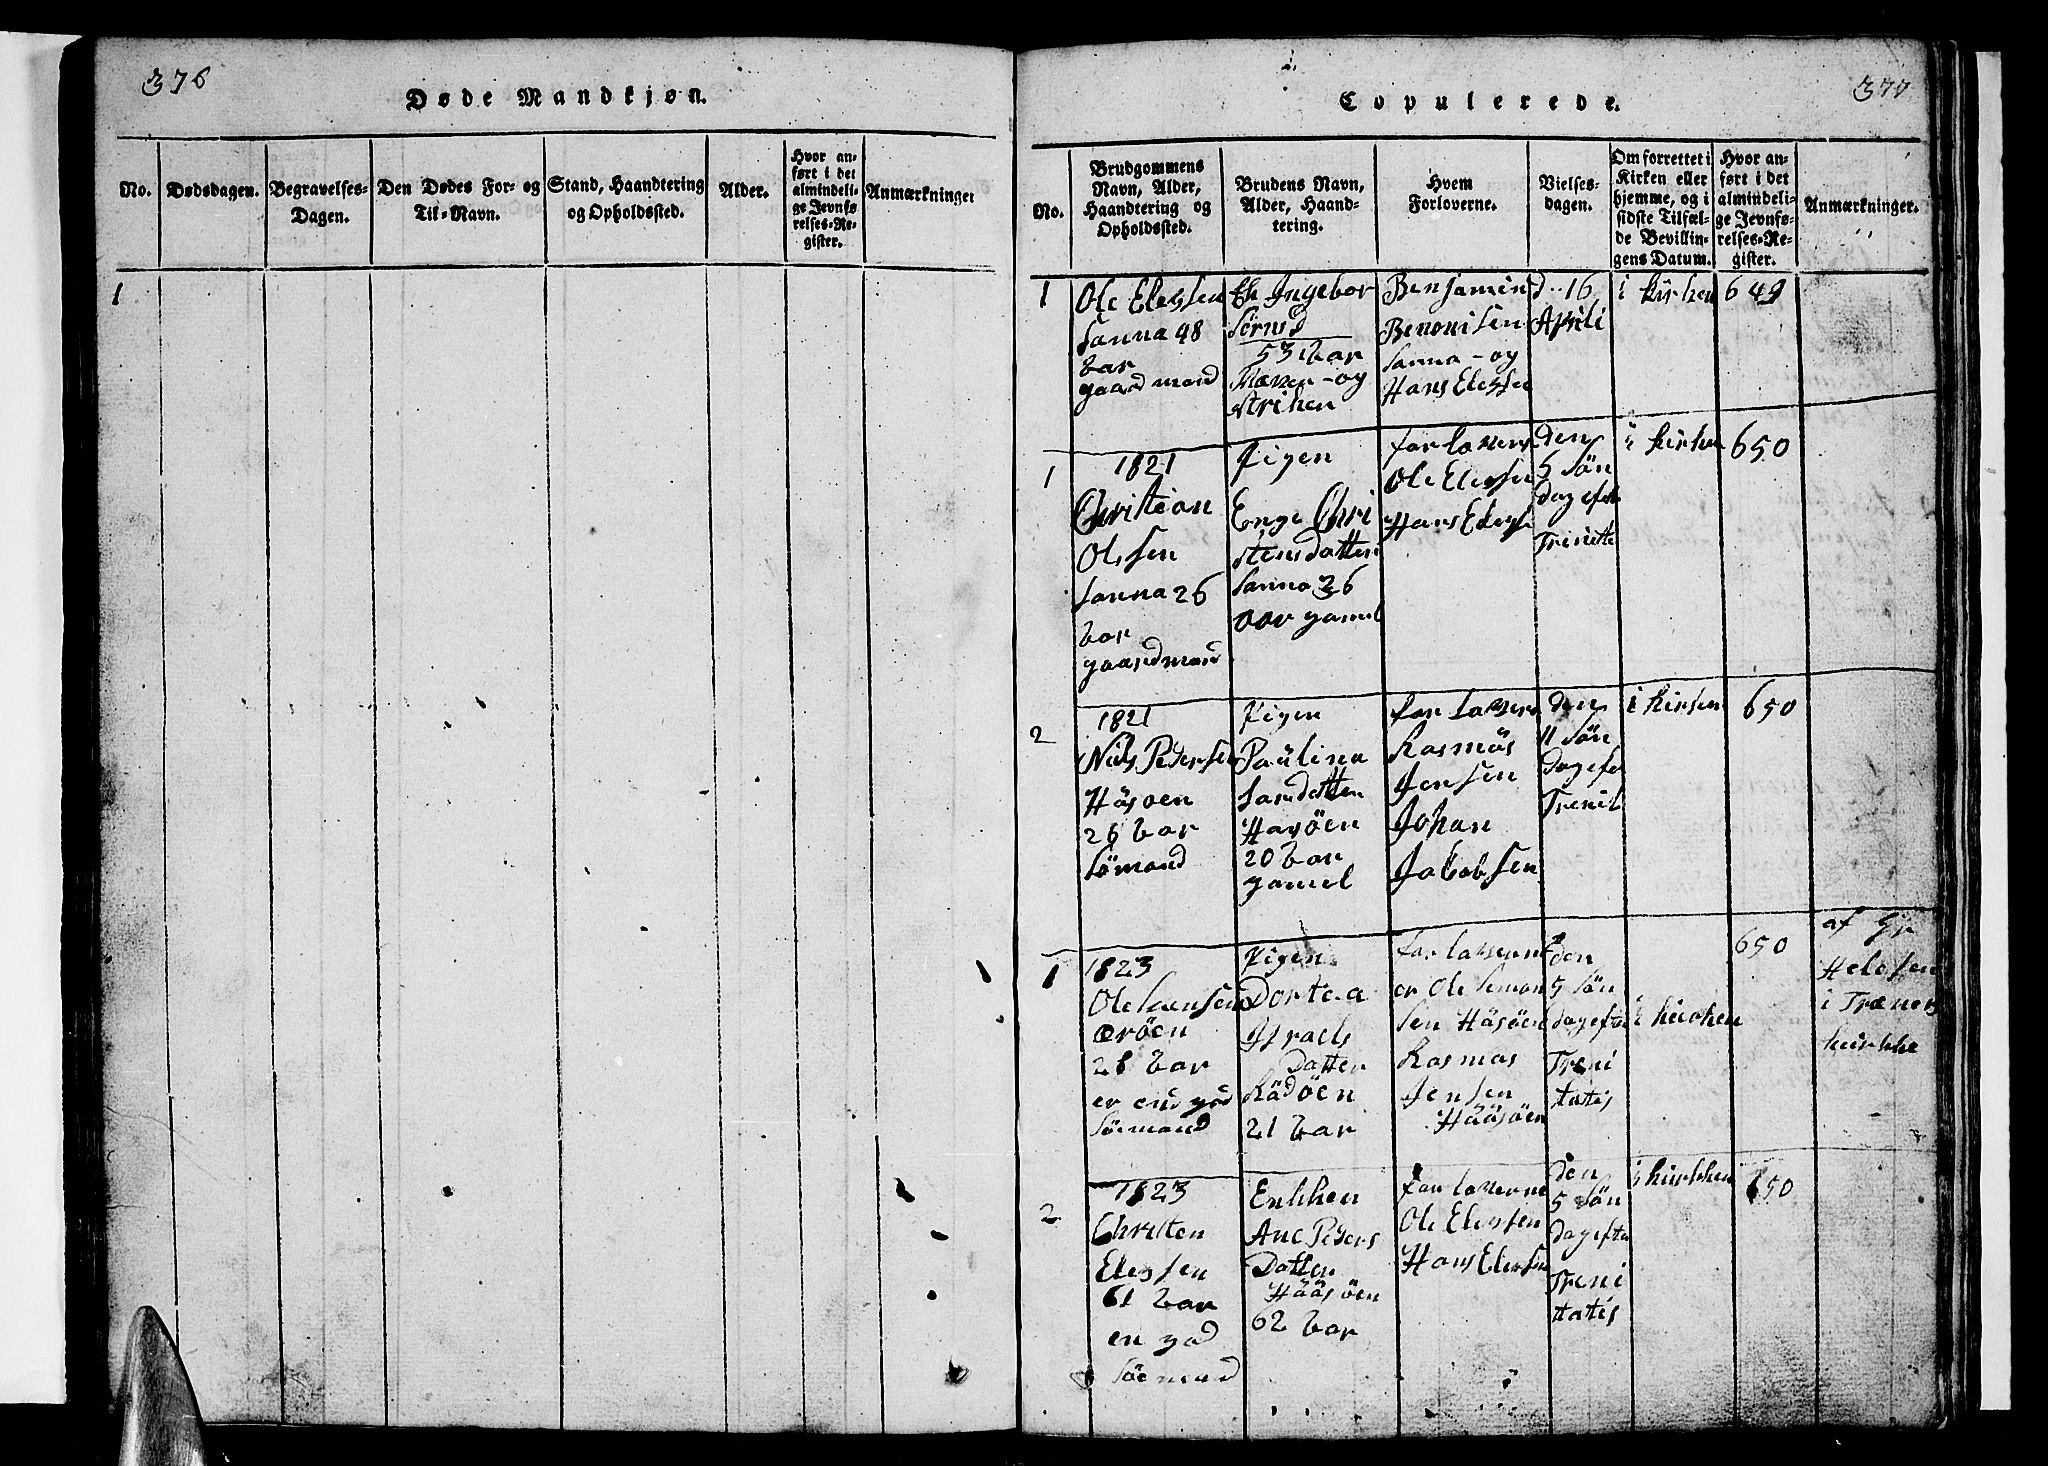 376
Døde Mandkjøn.
No.
Dødsdagen.
Begravelses-
Dagen.
Den Dødes For- og
Til-Navn.
Stand, Haandtering
og Opholdssted.
Alder.
Hvor an-
ført i det
almindeli-
ge Jevnfø-
relses-Re-
gister.
Anmærkninger
1
377
Copulerede.
No.
Brudgommens
Navn, Alder,
Haandtering og
Opholdssted.
Brudens Navn,
Alder, Haand-
tering.
Hvem
Forloverne.
Vielses-
dagen.
Om forrettet i
Kirken eller
hjemme, og i
sidste Tilfæl-
de Bevillin-
gens Datum.
Hvor an-
ført i det
almindeli-
ge Jevnfø-
relses-Re-
gister.
Anmærkninger.
1
Ole Elessen
Sanna 48
Aar
gaardmand
Ingebor
53 Aar
og
Benjamin
Benonisen
Sanna - og
Hans Elessen
d. 16
Apreli
i kirken
649
1
1821
Christian
Olssen
Sanna 26
Aar
gaardmand
Pigen
Enge Chri
stensdatter
Sanna 36
aar gamel
forlaverne
Ole Elessen
Hans Eless
den
5 Sön
Dag efter
Trinitte
i kirken
650
2
1821
Nils Pedersen
Hüsöen
26 Aar
Sömand
Pigen
Paulina
datter
Husöen
20 Aar
gamel
forlaverne
Rasmüs
Jensen
Johan
Jakobsen
den
11 Sön
Dag ef
Trenit
i kirken
650
1
1823
Ole
28 Aar
er en god
Söemand
Pigen
Dortea
Israels
Datter
Rödöen
21 Aar
forlaverne
er Ole Simon
sen Hüsöen
Rasmus
Jensen
Hüüsöen
den
5 Sön
Dag efter
Treni
tatis
i kirken
650
af Hr
i Trænens
kirkke
2
1823
Christen
Elessen
61 Aar
en god
Söemand
Enkken
Ane Peders
Datter
Hüüsöen
62 Aar
forlaverne
Ole Elessen
Hans Elessen
den
5 Sön
Dag efter
Treni
tatis
i kirkken
650